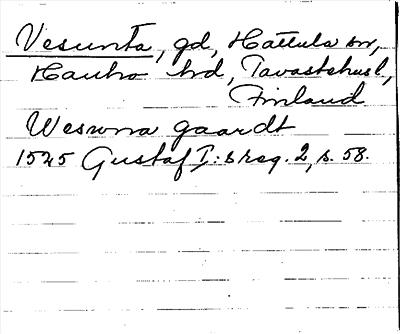 Vesunta, gd, Hattula sn,
Hauho hd, Tavastehusl.,
Finland
Weswna gaardt
1545 Gustaf I:s reg. 2, s. 58.